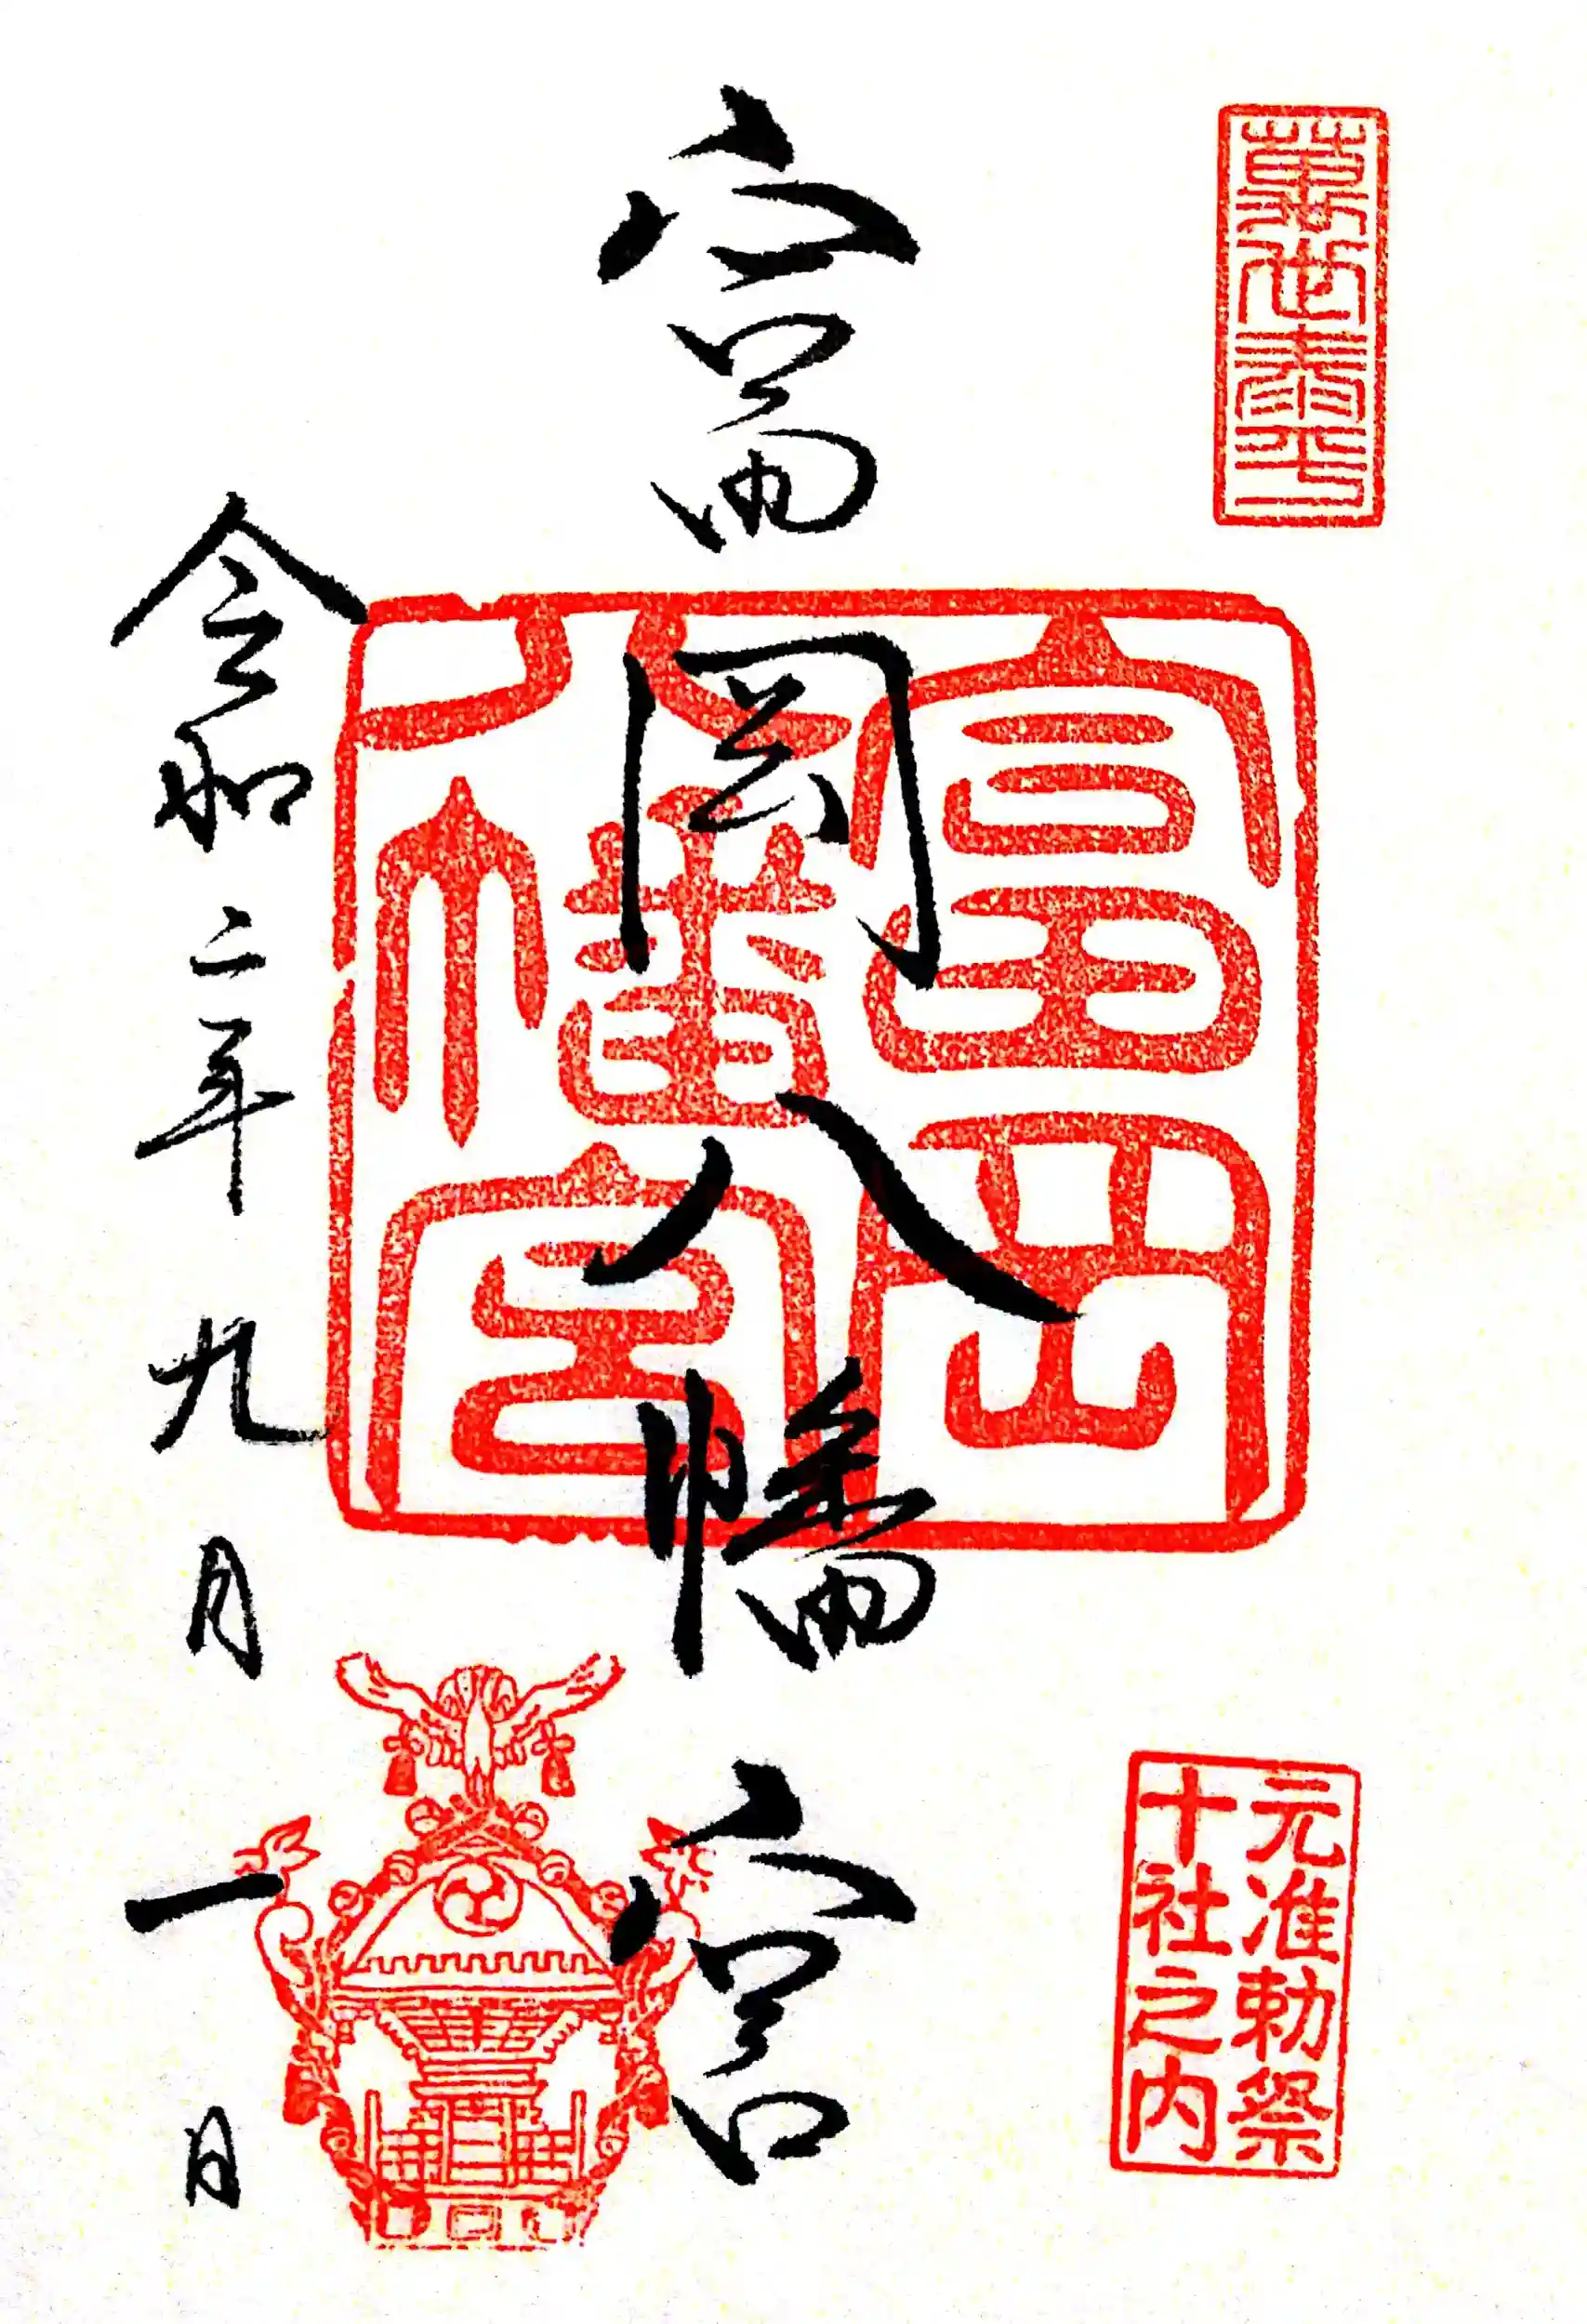 萬世泰平
元准勅祭
十社之内
富岡八幡宮
富岡
八幡宮
令和二年九月一日